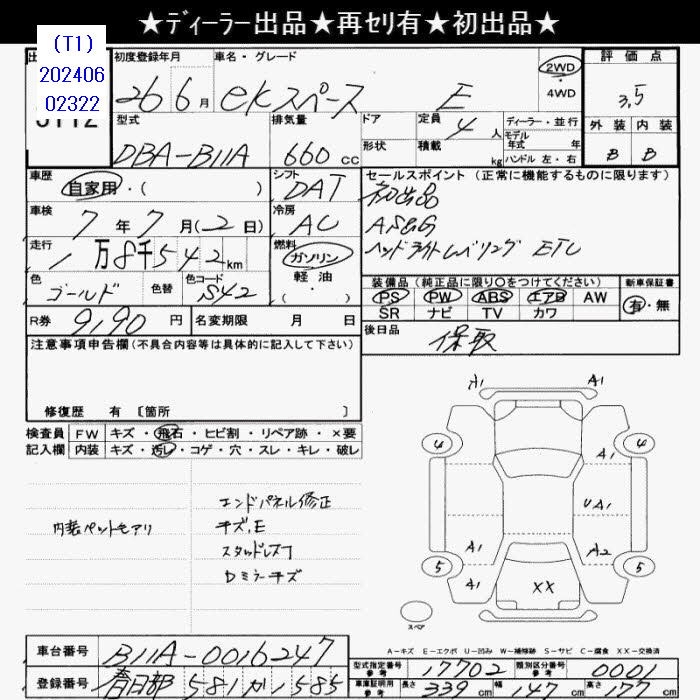 ★ディーラー出品★再セリ有★初出品★
(T1)
202406
02322
初度登録年月
車名・グレード
評価点
26 6月 ekスペース E
2WD
・
4WD
3.5
型式
排気量
ドア
定員 4人
ディーラー・並行
モデル年式 年
外装 内装
DBA-B11A 660cc
形状
積載 kg
ハンドル 左・右
B B
車歴
シフト
セールスポイント (正常に機能するものに限ります)
自家用・( )
DAT
初出品
車検
冷房
7年7月(2日)
AC
AS&G
走行
燃料
ヘッドライトレベリング ETC
1万8千542km
ガソリン・
軽油・
( )
色
色替
色コード
ゴールド S42
装備品 (純正品に限り○をつけてください)
新車保証書
PS PW ABS エアB AW
有・無
SR ナビ TV カワ
R券 9190円
名変期限 月 日
後日品
保取
注意事項申告欄 (不具合内容等は具体的に記入して下さい)
修復歴 有 〔箇所 〕
検査員
FW キズ・飛石・ヒビ割・リペア跡・×要
記入欄
内装 キズ・汚レ・コゲ・穴・スレ・キレ・破レ
A1 A1
4 4
A1
UA1
A1 A2
5 5
A1 XX
スペア
エンドパネル修正
内装ペットモアリ
キズ,E
スタッドレス7
Dミラーキズ
A-キズ E-エクボ U-凹み W-補修跡 S-サビ C-腐食 XX-交換済
車台番号 B11A-0016247
型式指定番号 参考 17702
類別区分番号 参考 0001
登録番号 春日部 581か1585
車庫証明用 参考
長さ 339cm
幅 147cm
高さ 177cm